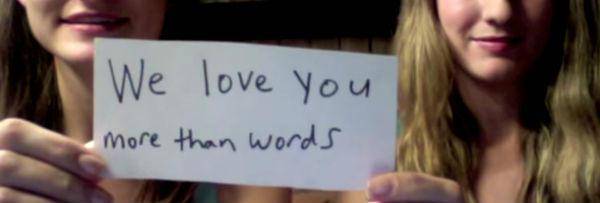 We love you
more than words